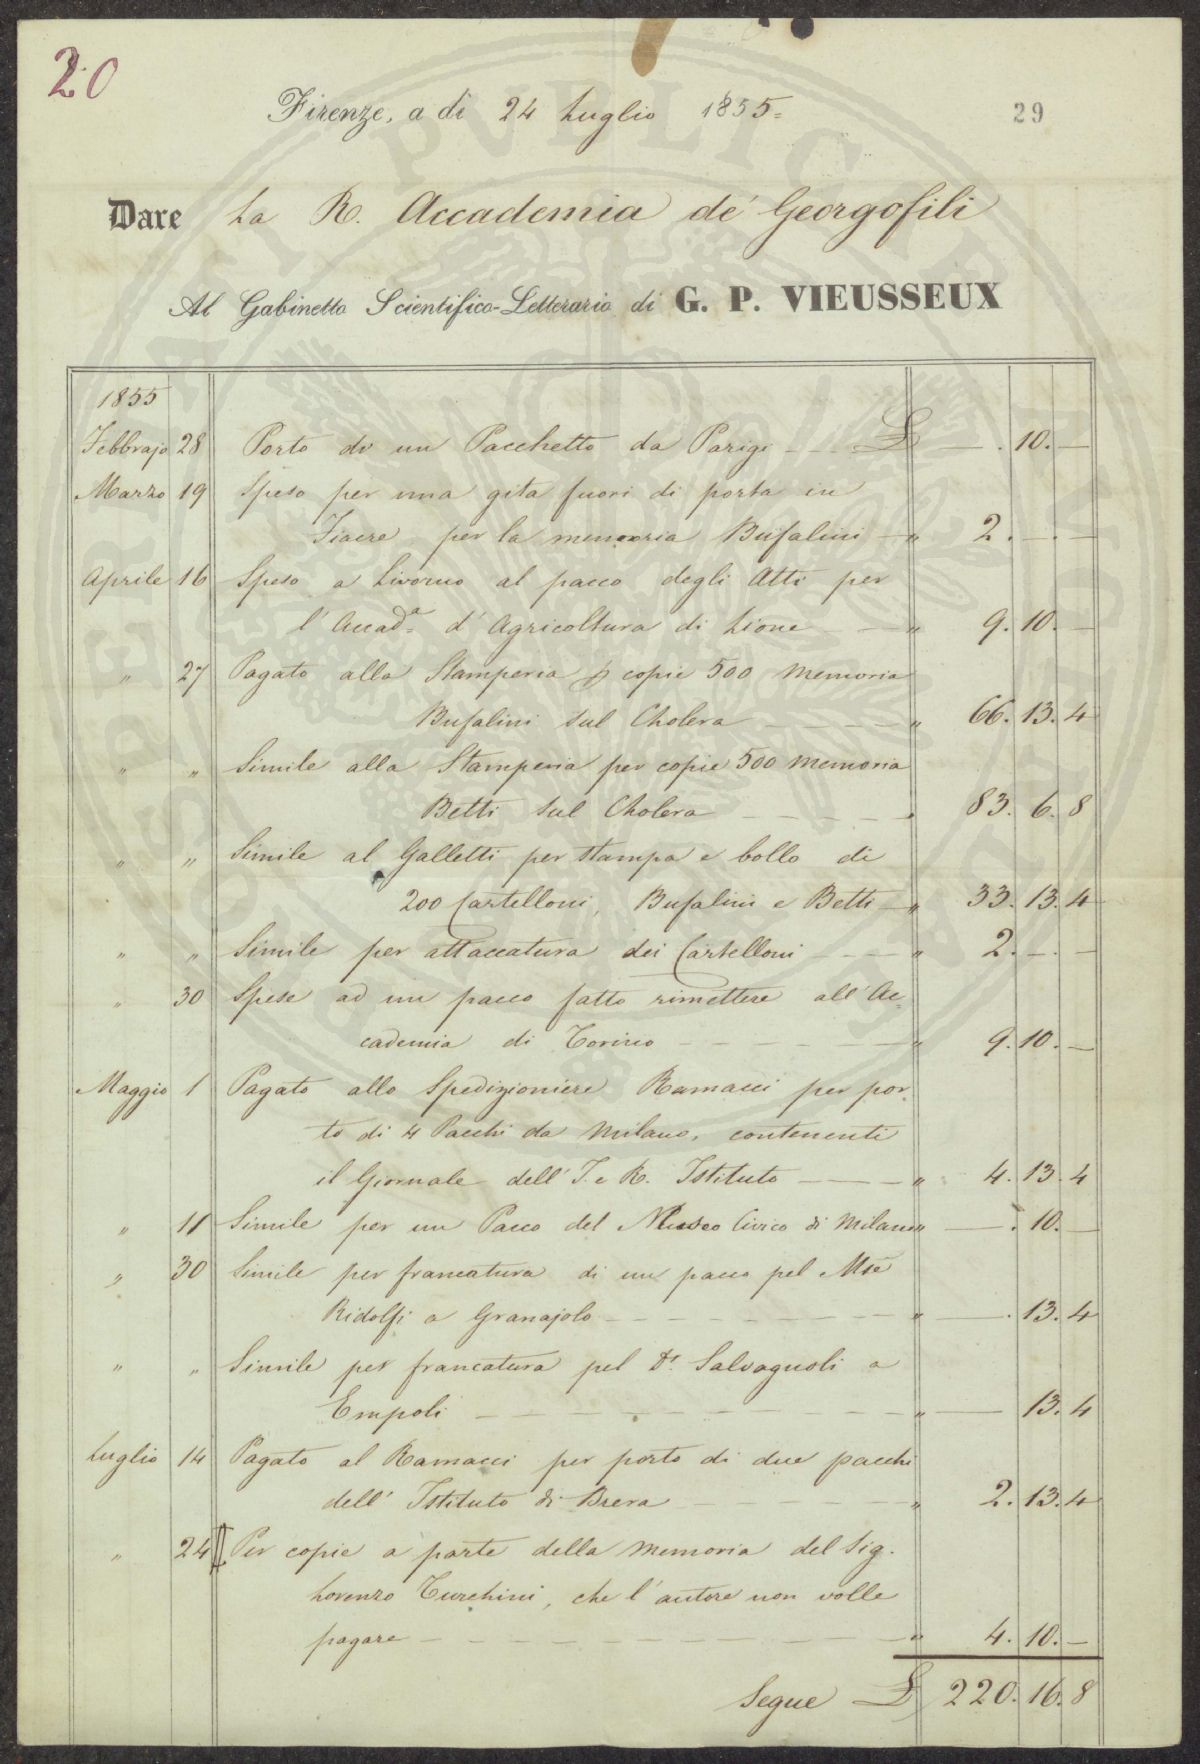 20
Firenze, a dì 24 Luglio 1855=
29
Dare La R. Accademia de' Georgofili
Al Gabinetto Scientifico-Letterario di G. P. VIEUSSEUX
1855
Febbrajo 28 Porto di un Pacchetto da Parigi £ — . 10. —
Marzo 19 Speso per una gita fuori di porta in
Fiacre per la memoria Bufalini — " 2. — . —
Aprile 16 Speso a Livorno al pacco degli Atti per
l'Accad.a d'Agricoltura di Lione — " 9. 10. —
" 27 Pagato alla Stamperia p copie 500 Memoria
Bufalini sul Cholera — " 66. 13. 4
" " Simile alla Stamperia per copie 500 Memoria
Betti sul Cholera — " 83. 6. 8
" " Simile al Galletti per stampa e bollo di
200 Cartelloni, Bufalini e Betti — " 33. 13. 4
" " Simile per attaccatura dei Cartelloni — " 2. — . —
" 30 Spese ad un pacco fatto rimettere all'Ac=
cademia di Torino — " 9. 10. —
Maggio 1 Pagato allo Spedizioniere Ramacci per por
to di 4 Pacchi da Milano, contenenti
il Giornale dell' I. e R. Istituto — " 4. 13. 4
" 11 Simile per un Pacco del Museo Civico di Milano " — . 10. —
" 30 Simile per francatura di un pacco pel Mse
Ridolfi a Granajolo — " — . 13. 4
" " Simile per francatura pel Dr. Salvagnoli a
Empoli — " — 13. 4
Luglio 14 Pagato al Ramacci per porto di due pacchi
dell' Istituto di Brera — " 2. 13. 4
" 24 Per copie a parte della Memoria del Sig.
Lorenzo Turchini, che l'autore non volle
pagare — " 4. 10. —
Segue £ 220. 16. 8